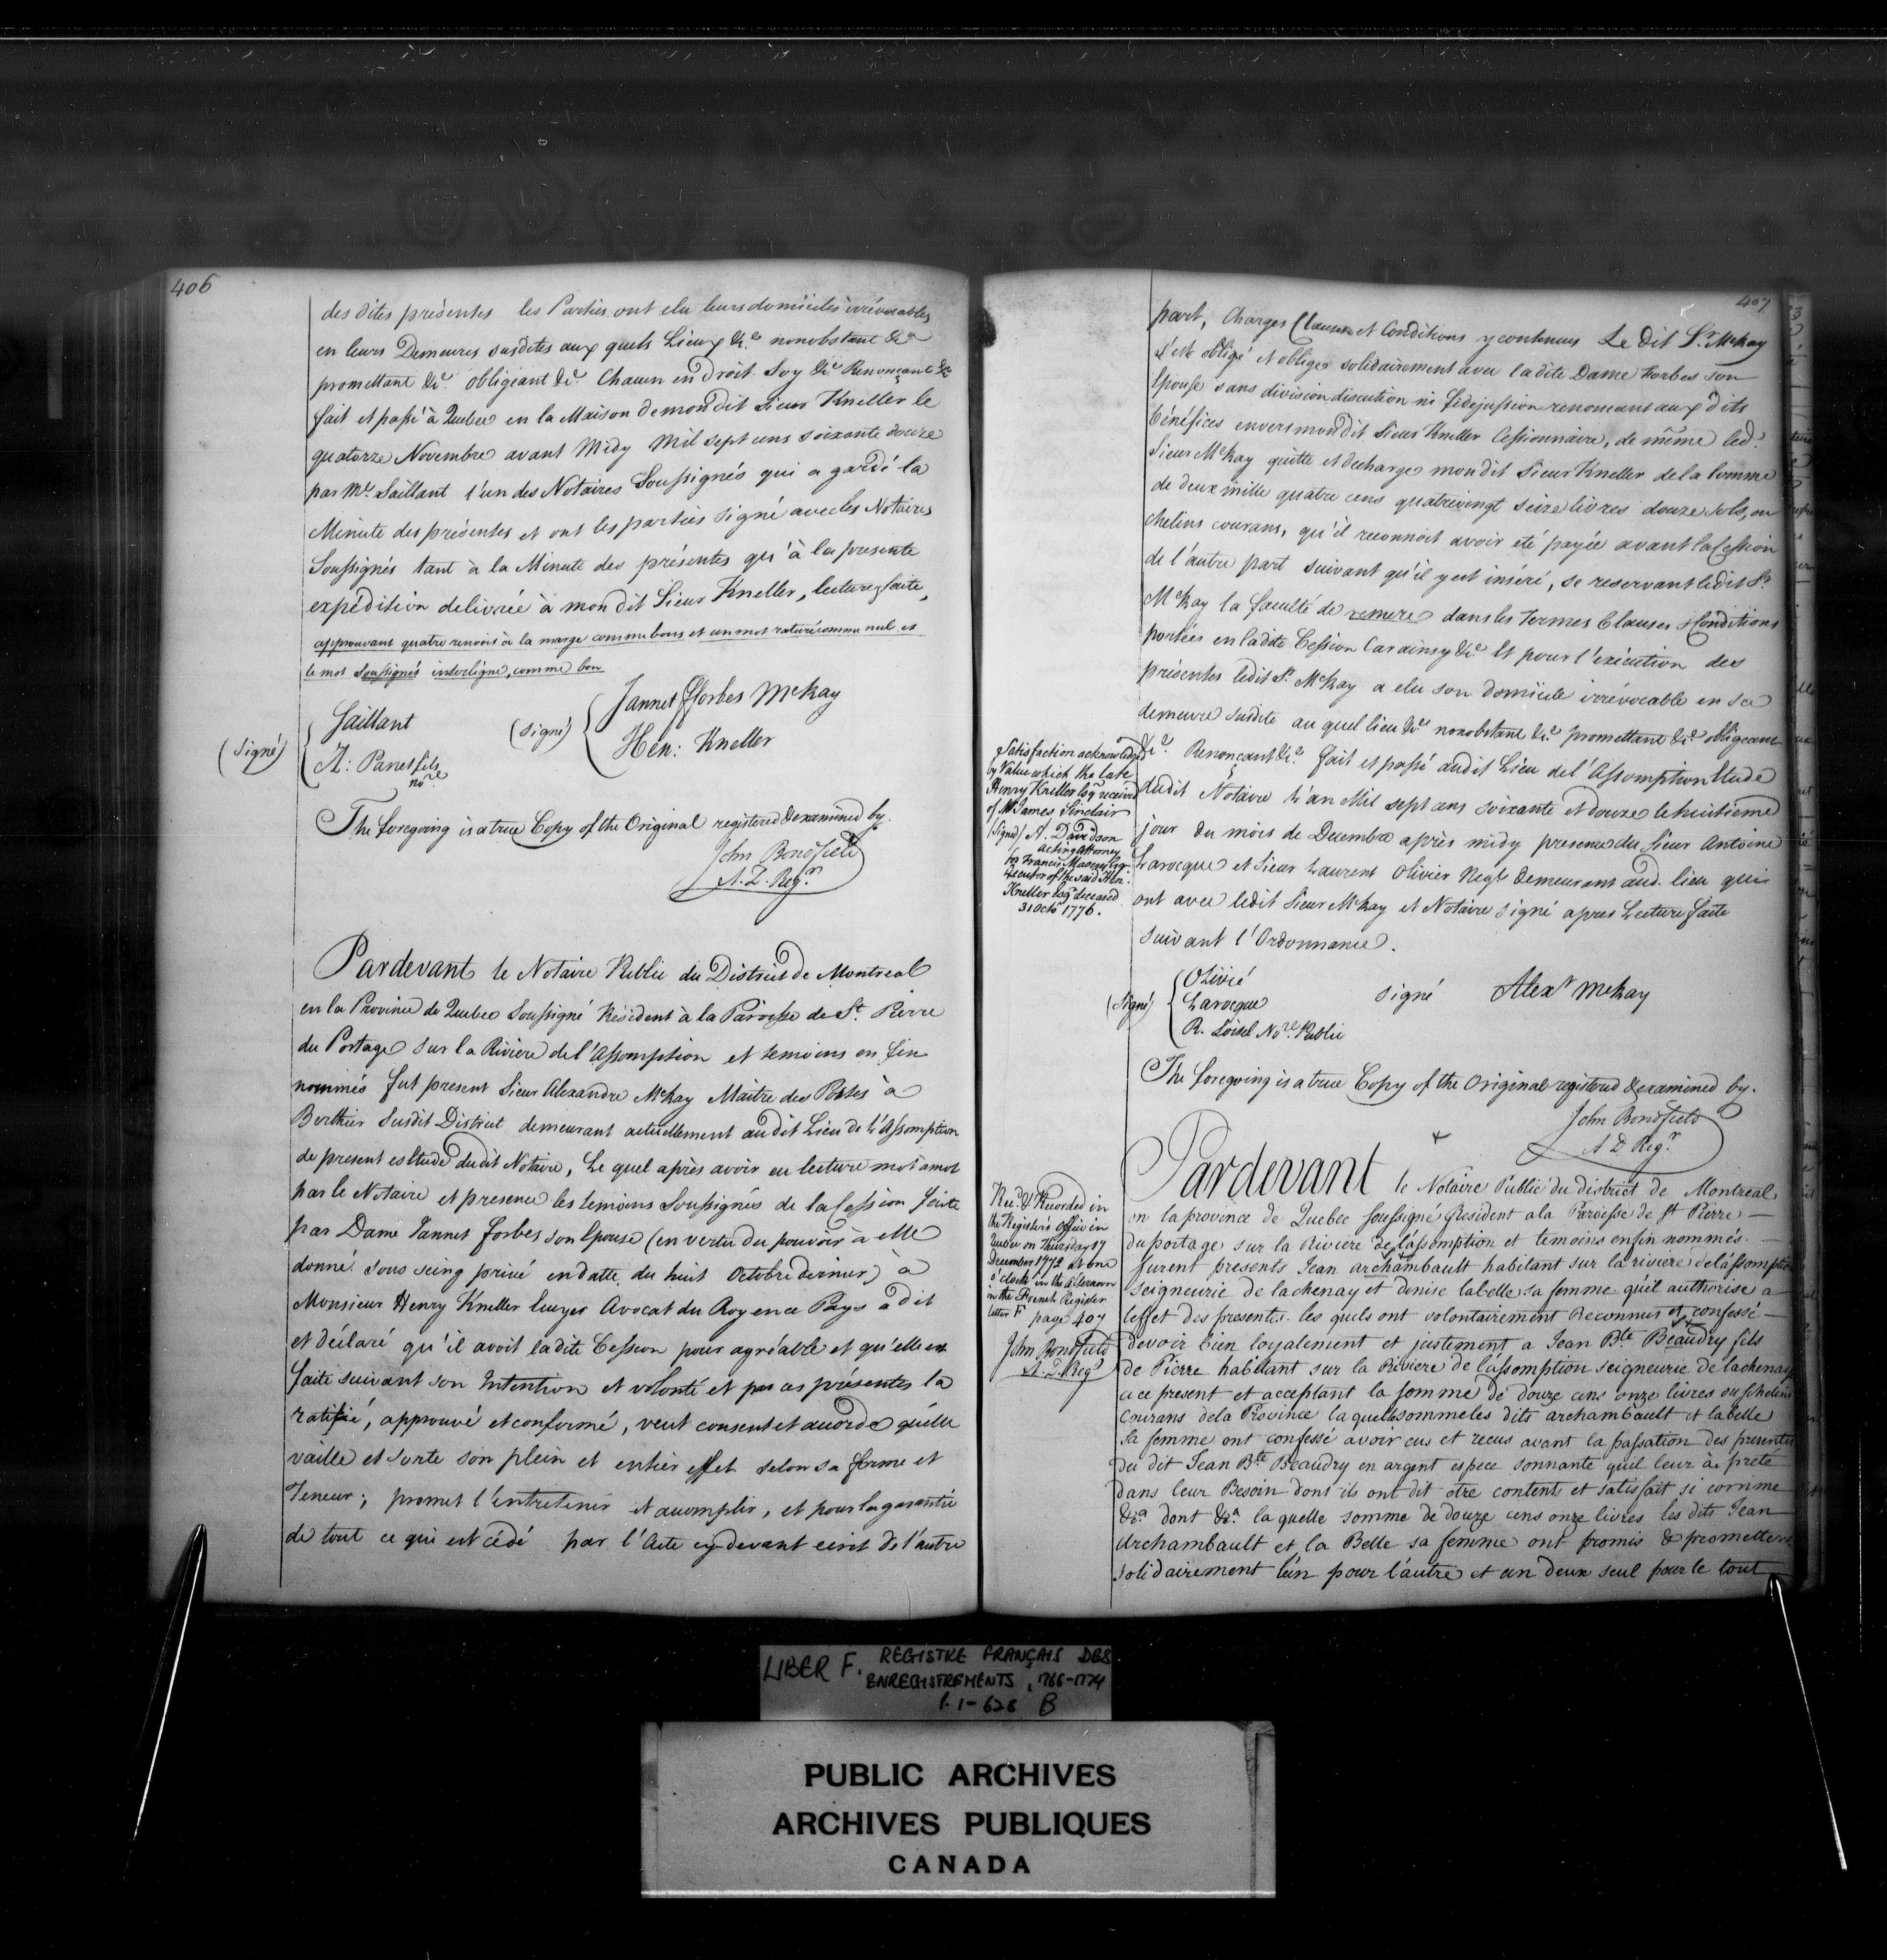 406
des dites présentes les Parties ont elu leurs domiciles irrévocables
en leurs Demeures susdites aux quels Lieux &c.a nonobstant &c.a
promettant &c.a obligeant &c.a Chacun en droit Soy &c.a Renonçant &c.a
fait et passé à Quebec en la Maison de mondit Sieur Kneller le
quatorze Novembre avant Midy mil sept cens soixante douze
par Me. Saillant l'un des Notaires Soussignés qui a gardé la
Minute des présentes et ont les parties signé avec les Notaires
Soussignés tant à la Minute des présentes qu'à la presente
expédition delivrée à mon dit Sieur Kneller, lecture faite,
approuvant quatre renvois à la marge comme bons et un mot raturé comme nul et
le mot Soussignés interligne, comme bon
(Signé) Saillant
A: Panet fils
no.re
(signé) Jannet fforbes McKay
Hen: Kneller
The foregoing is a true Copy of the Original registered & examined by.
John Bondfield
A. D. Reg.r
Pardevant le Notaire Public du District de Montreal
en la Province de Quebec Soussigné Résident à la Paroisse de St. Pierre
du Portage sur la Riviere de l'Assomption et temoins en fin
nommés fut present Sieur Alexandre McKay Maitre des Postes à
Berthier Susdit District demeurant actuellement au dit Lieu de L'Assomption
de present es Etude du dit Notaire, Le quel après avoir eu lecture mot amot
par le Notaire et presence les temoins Soussignés de la Cession faite
par Dame Jannet Forbes son Epouse (en vertu du pouvoir à elle
donné sous seing privé en datte du huit Octobre dernier) à
Monsieur Henry Kneller Ecuyer Avocat du Roy en ce Pays a dit
et déclaré qu'il avoit la dite Cession pour agréable et qu'elle est
faite suivant son Intention et volonté et par ces présentes la
ratifié, approuvé et confirmé, veut consent et accorde qu'elle
vaille et sorte son plein et entier effet selon sa forme et
Teneur; promet l'entretenir et accomplir, et pour la garantie
de tout ce qui est cédé par l'Acte cy devant ecrit de l'autre
407
part, Charges Clauses et Conditions y contenues Le dit Sr. McKay
s'est obligé et oblige solidairement avec la dite Dame Forbes son
Epouse sans division discution ni fidejussion renoncant aux dits
bénéfices envers mondit Sieur Kneller Cessionnaire, de même led.
Sieur McKay quitte et decharge mon dit Sieur Kneller de la Somme
de deux mille quatre cens quatrevingt seize livres douze sols, ou
chelins courans, qu'il reconnoit avoir été payée avant la Cession
de l'autre part suivant qu'il y est inséré, se reservant ledit Sr.
McKay la faculté de remere dans les Termes Clauses & Conditions
portées en ladite Cession Car ainsy &c.a Et pour l'exécution des
présentes ledit Sr. McKay a elu son domicile irrévocable en sa
demeure susdite au quel lieu &c.a nonobstant &c.a promettant &c.a obligeant
&c.a Renoncant &c.a fait et passé audit Lieu de l'Assomption Etude
dudit Notaire L'an Mil sept cens soixante et douze le huitieme
jour du mois de Decembre après midy presence du Sieur Antoine
Larocque et Sieur Laurent Olivier Negt. Demeurant aud. lieu qui
ont avec ledit Sieur McKay et Notaire signé apres Lecture faite
suivant l'Ordonnance.
Satisfaction acknowledged
by Value which the late
Henry Kneller Esqr. received
of Mr. James Sinclair
(Signd) A. Davidson
acting Attorney
for Francis Maseres Esqr
Executor of the said Hen:
Kneller Esqr deceased
31 Octr. 1776.
(signé) Olivié
Larocque
R. Loisel No.re Public
signé Alex.r McKay
The foregoing is a true Copy of the Original registered & examined by.
John Bondfield
A D Reg.r
Rec.d & Recorded in
the Registers Office in
Quebec on Thursday 17
December 1772 at one
o'clock in the Afternoon
in the French Register
letter F page 407
John Bondfield
A. D. Reg.r
Pardevant le Notaire Public du district de Montreal
en la province de Quebec soussigné Resident a la Paroisse de St Pierre
du portage sur la Riviere de l'assomption et temoins enfin nommés.
furent presents Jean archambault habitant sur la riviere de l'assomption
seigneurie de lachenay et denise labelle sa femme qu'il authorise a
l'effet des presentes. les quels ont volontairement Reconnus et confessé
devoir bien loyalement et justement a Jean Bte. Beaudry fils
de Pierre habitant sur la Riviere de l'assomption seigneurie de lachenaye
a ce present et acceptant la somme de douze cens onze livres ou schelins
Courans de la Province laquelle somme les dits archambault et labelle
sa femme ont confessé avoir eus et recus avant la passation des presentes
du dit Jean Bte Beaudry en argent espece sonnante qu'il leur a prété
dans leur Besoin dont ils ont dit etre contents et satisfait si comme
&c.a dont &c.a la quelle somme de douze cens onze livres les dits Jean
Archambault et la Belle sa femme ont promis & promettent
solidairement l'un pour l'autre et un deux seul pour le tout
LIBER F. REGISTRE FRANÇAIS DES
ENREGISTREMENTS, 1766-1774
f. 1-628 B
PUBLIC ARCHIVES
ARCHIVES PUBLIQUES
CANADA